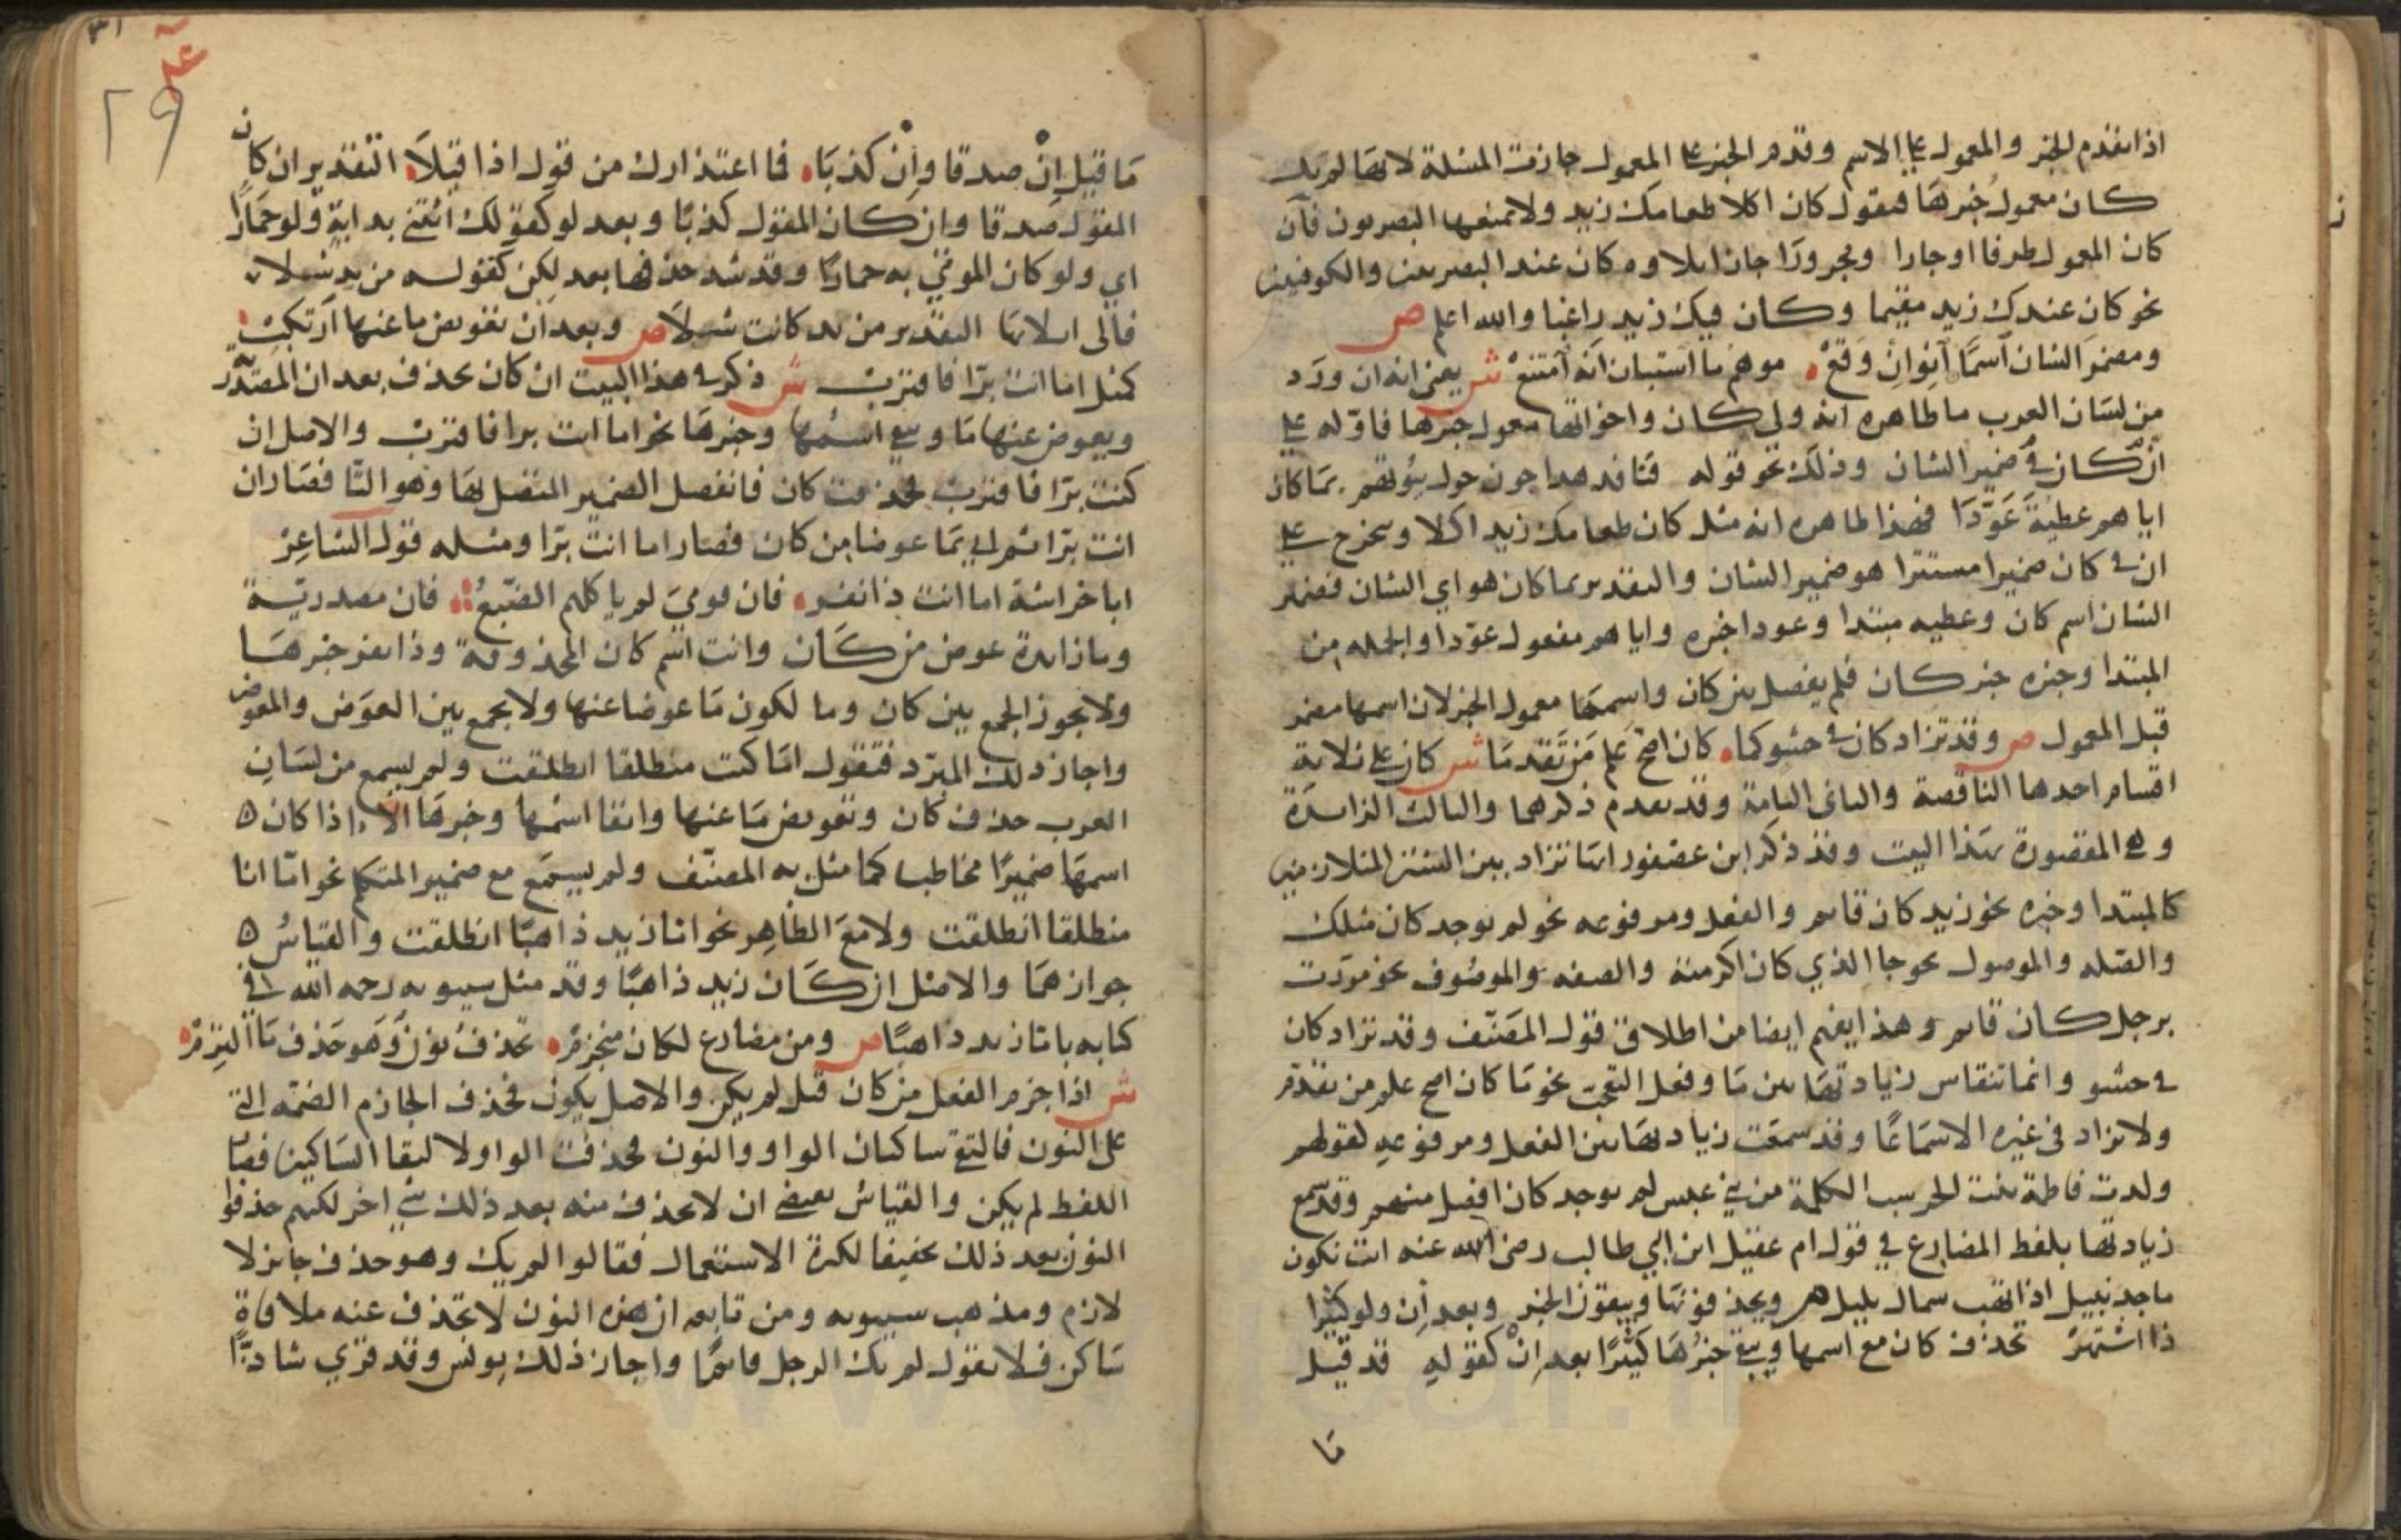 اذا تقدم الخبر والمعمول على الاسم وقدم الخبر على المعمول جازت المسئلة لانها لم يك
كان معمول خبرها فتقول كان اكلا طعامك زيد ولا تمنعها البصريون فان
كان المعمول ظرفا او جارا ومجرورا جاز ايلاوه كان عند البصريين والكوفيين
نحو كان عندك زيد مقيما وكان فيك زيد راغبا والله اعلم ص
ومضمر الشان اسما انو ان وقع موهم ما استبان انه امتنع ش يعني انه ان ورد
من لسان العرب ما ظاهره انه ولي كان واخواتها معمول خبرها فاوله على
ان كان في ضمير الشان وذلك نحو قوله قنافد هداجون حول بيوتهم بما كان
اياهم عطية عودا فهذا ظاهره انه مثل كان طعامك زيد اكلا ويخرج على
ان في كان ضميرا مستترا هو ضمير الشان والتقدير بما كان هو اي الشان فضمير
الشان اسم كان وعطيه مبتدا وعودا خبره واياهم مفعول عودا والجمله من
المبتدا وخبره خبر كان فلم يفصل بين كان واسمها معمول الخبر لان اسمها مضمر
قبل المعمول ص وقد تزاد كان في حشو كما كان اصح علم من تقدما ش كان على ثلاثة
اقسام احدها الناقصة والثاني التامة وقد تقدم ذكرهما والثالث الزائدة
وهي المقصورة بهذا البيت وقد ذكر ابن عصفور انها تزاد بين الشيئين المتلازمين
كالمبتدا وخبره نحو زيد كان قايم والفعل ومرفوعه نحو لم يوجد كان مثلك
والصله والموصول نحو جا الذي كان اكرمته والصفه والموصوف نحو مررت
برجل كان قايم وهذا يفهم ايضا من اطلاق قول المصنف وقد تزاد كان
في حشو وانما تنقاس زيادتها بين ما وفعل التعجب نحو ما كان اصح علم من تقدم
ولا تزاد في غيره الا سماعا وقد سمعت زيادتها بين الفعل ومرفوعه لقولهم
ولدت فاطمة بنت الخرسب الكملة من بني عبس لم يوجد كان افضل منهم وقد سمع
زيادتها بلفظ المضارع في قول ام عقيل ابن ابي طالب رضي الله عنه انت تكون
ماجد نبيل اذا تهب شمال بليل ص ويحذفونها ويبقون الخبر وبعد ان ولو كثيرا
ذا اشتهر تحذف كان مع اسمها ويبقى خبرها كثيرا بعد ان كقوله قد قيل
ما
٣١
٢٩
ما قيل ان صدقا وان كذبا فما اعتذارك من قول اذا قيلا التقدير ان كان
المقول صدقا وان كان المقول كذبا وبعد لو كقولك ائتني بدابة ولو حمارا
اي ولو كان الموتى به حمارا وقد شذ حذفها بعد لكن كقوله من لد شولا
فالى اتلائها التقدير من لد كانت شولا ص وبعد ان تعويض ما عنها ارتكب
كمثل اما انت برا فاقترب ش ذكر في هذا البيت ان كان تحذف بعد ان المصدر
ويعوض عنها ما ويبقى اسمها وخبرها نحو اما انت برا فاقترب والاصل ان
كنت برا فاقترب فحذفت كان فانفصل الضمير المتصل بها وهو التا فصار ان
انت برا ثم اتي بما عوضا من كان فصار اما انت برا ومثله قول الشاعر
ابا خراشة اما انت ذا نفر فان قومي لم ياكلهم الضبع فان مصدرية
وما زايدة عوض من كان وانت اسم كان المحذوفة وذا نفر خبرها
ولا يجوز الجمع بين كان وما لكون ما عوضا عنها ولا يجمع بين العوض والمعوض
واجاز ذلك المبرد فتقول اما كنت منطلقا انطلقت ولم يسمع من لسان
العرب حذف كان وتعويض ما عنها وابقا اسمها وخبرها الا اذا كان ه
اسمها ضميرا مخاطبا كما مثل به المصنف ولم يسمع مع ضمير المتكلم نحو اما انا
منطلقا انطلقت ولا مع الظاهر نحو اما زيد ذاهبا انطلقت والقياس ه
جوازهما والاصل ان كان زيد ذاهبا وقد مثل سيبويه رحمه الله في
كتابه باما زيد ذاهبا ص ومن مضارع لكان منجزم تحذف نون وهو حذف ما التزم
ش اذا جزم الفعل من كان قيل لم يكن والاصل يكون فحذف الجازم الضمه التي
على النون فالتقى ساكنان الواو والنون فحذفت الواو لالتقا الساكنين فصار
اللفظ لم يكن والقياس يقتضي ان لا يحذف منه بعد ذلك شي اخر لكنهم حذفوا
النون بعد ذلك تخفيفا لكثرة الاستعمال فقالوا لم يك وهو حذف جايز لا
لازم ومذهب سيبويه ومن تابعه ان هذه النون لا تحذف عند ملاقاة
ساكن فلا تقول لم يك الرجل قايما واجاز ذلك يونس وقد قري شاذا